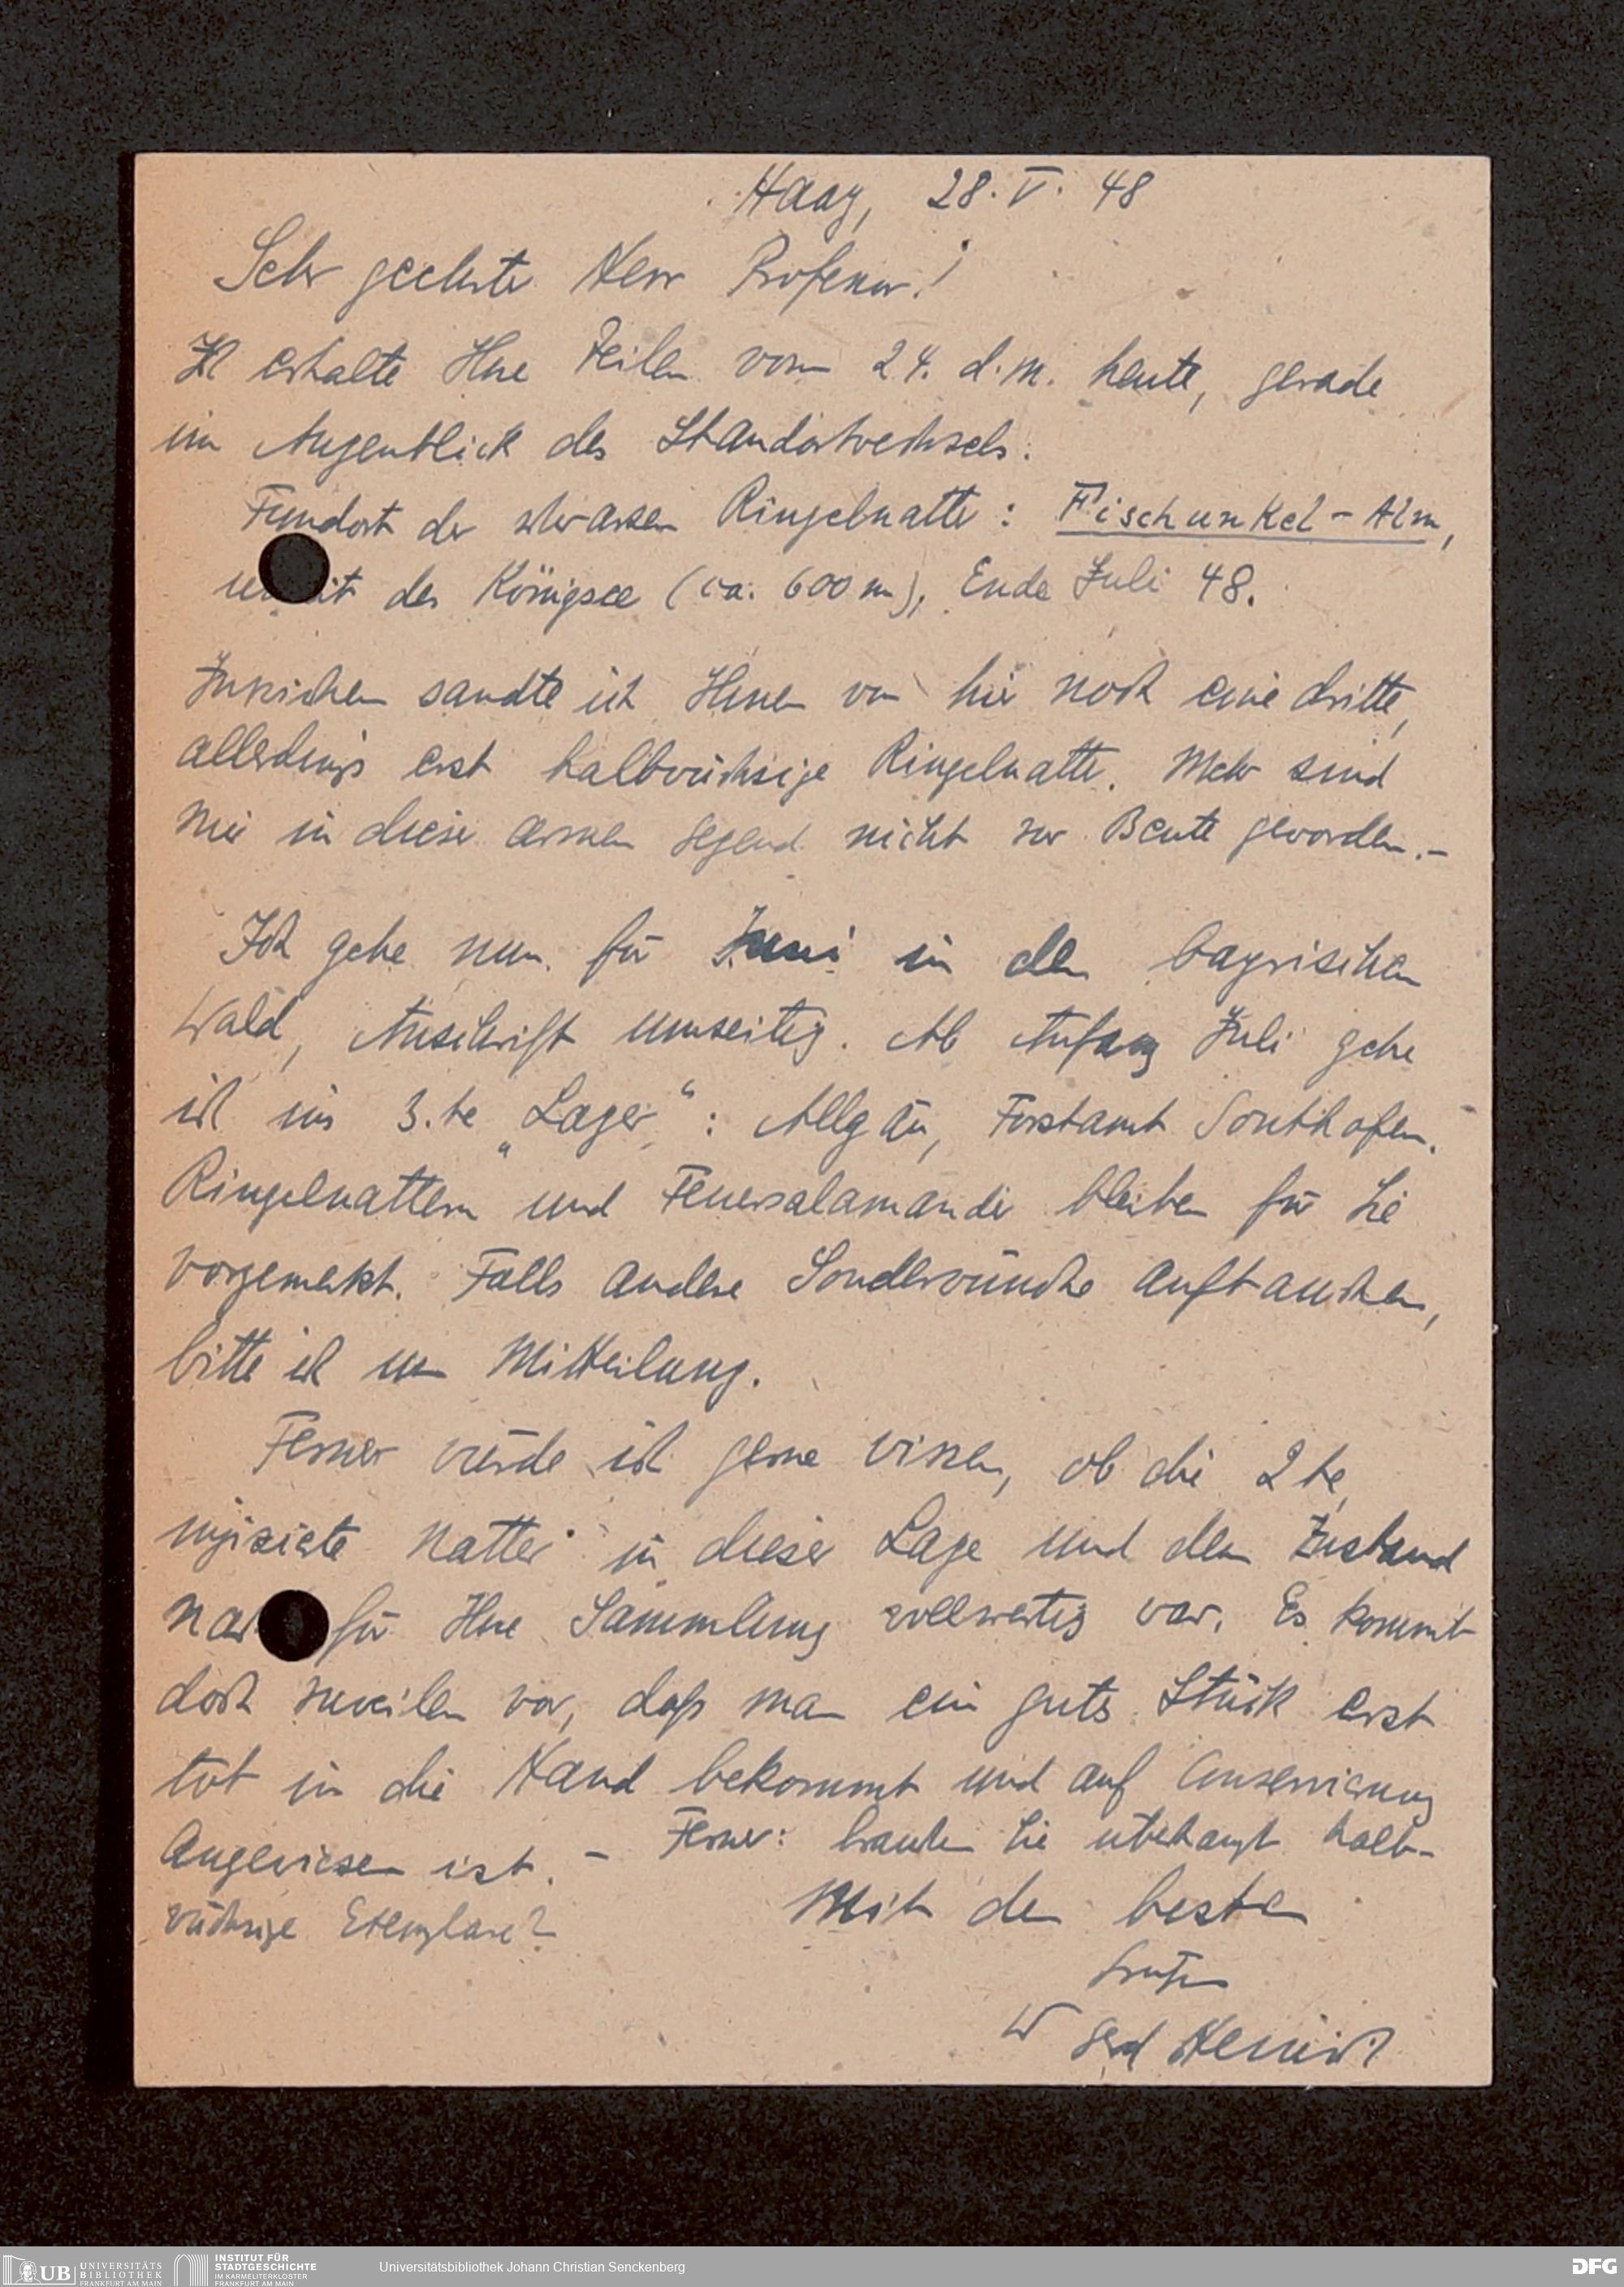 Haag, 28. V. 48
Sehr geehrter Herr Professor!
Ich erhalte Ihre Zeilen vom 24. d. M. heute, gerade
im Augenblick des Standortwechsels.
Fundort der schwarzen Ringelnatter: Fischunkel-Alm,
des Königsee (ca. 600 m), Ende Juli 48.
Inzwischen sandte ich Ihnen von hier noch eine dritte,
allerdings erst halbwüchsige Ringelnatter. Mehr sind
mir in dieser armen Gegend nicht zur Beute geworden.-
Ich gehe nun für Juni in den bayrischen
Wald, Anschrift umseitig. Ab Anfang Juli gehe
ich ins 3.te „Lager“: Allgäu, Forstamt Sonthofen.
Ringelnattern und Feuersalamander bleiben für Sie
vorgemerkt. Falls andere Sonderwünsche auftauchen,
bitte ich um Mitteilung.
Ferner würde ich gerne wissen, ob die 2te,
injizierte Natter in dieser Lage und dem Zustand
für Ihre Sammlung vollwertig war. Es kommt
doch zuweilen vor, daß man ein gutes Stück erst
tot in die Hand bekommt und auf Conservierung
angewiesen ist. - Ferner: brauchen Sie überhaupt halb-
wüchsige Exemplare?
Mit den besten
Grüßen
Gerd Heinrich
UB UNIVERSITÄTS
BIBLIOTHEK
FRANKFURT AM MAIN
INSTITUT FÜR
STADTGESCHICHTE
IM KARMELITERKLOSTER
FRANKFURT AM MAIN
Universitätsbibliothek Johann Christian Senckenberg
DFG